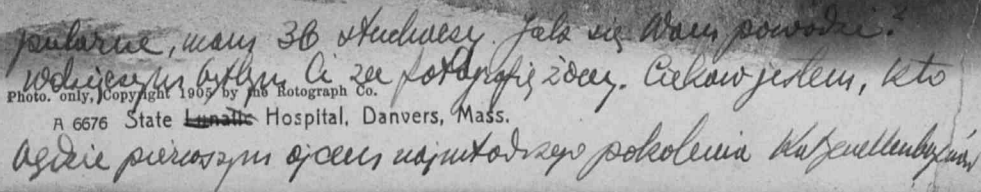 pularne, mam 36 słuchaczy. Jak się Wam powodzi?
Wdzięcznym byłbym Ci za fotografię żony. Ciekaw jestem, kto
Photo. only, Copyright 1905 by the Rotograph Co.
A 6676 State Lunatic Hospital, Danvers, Mass.
będzie pierwszym ojcem najmłodszego pokolenia